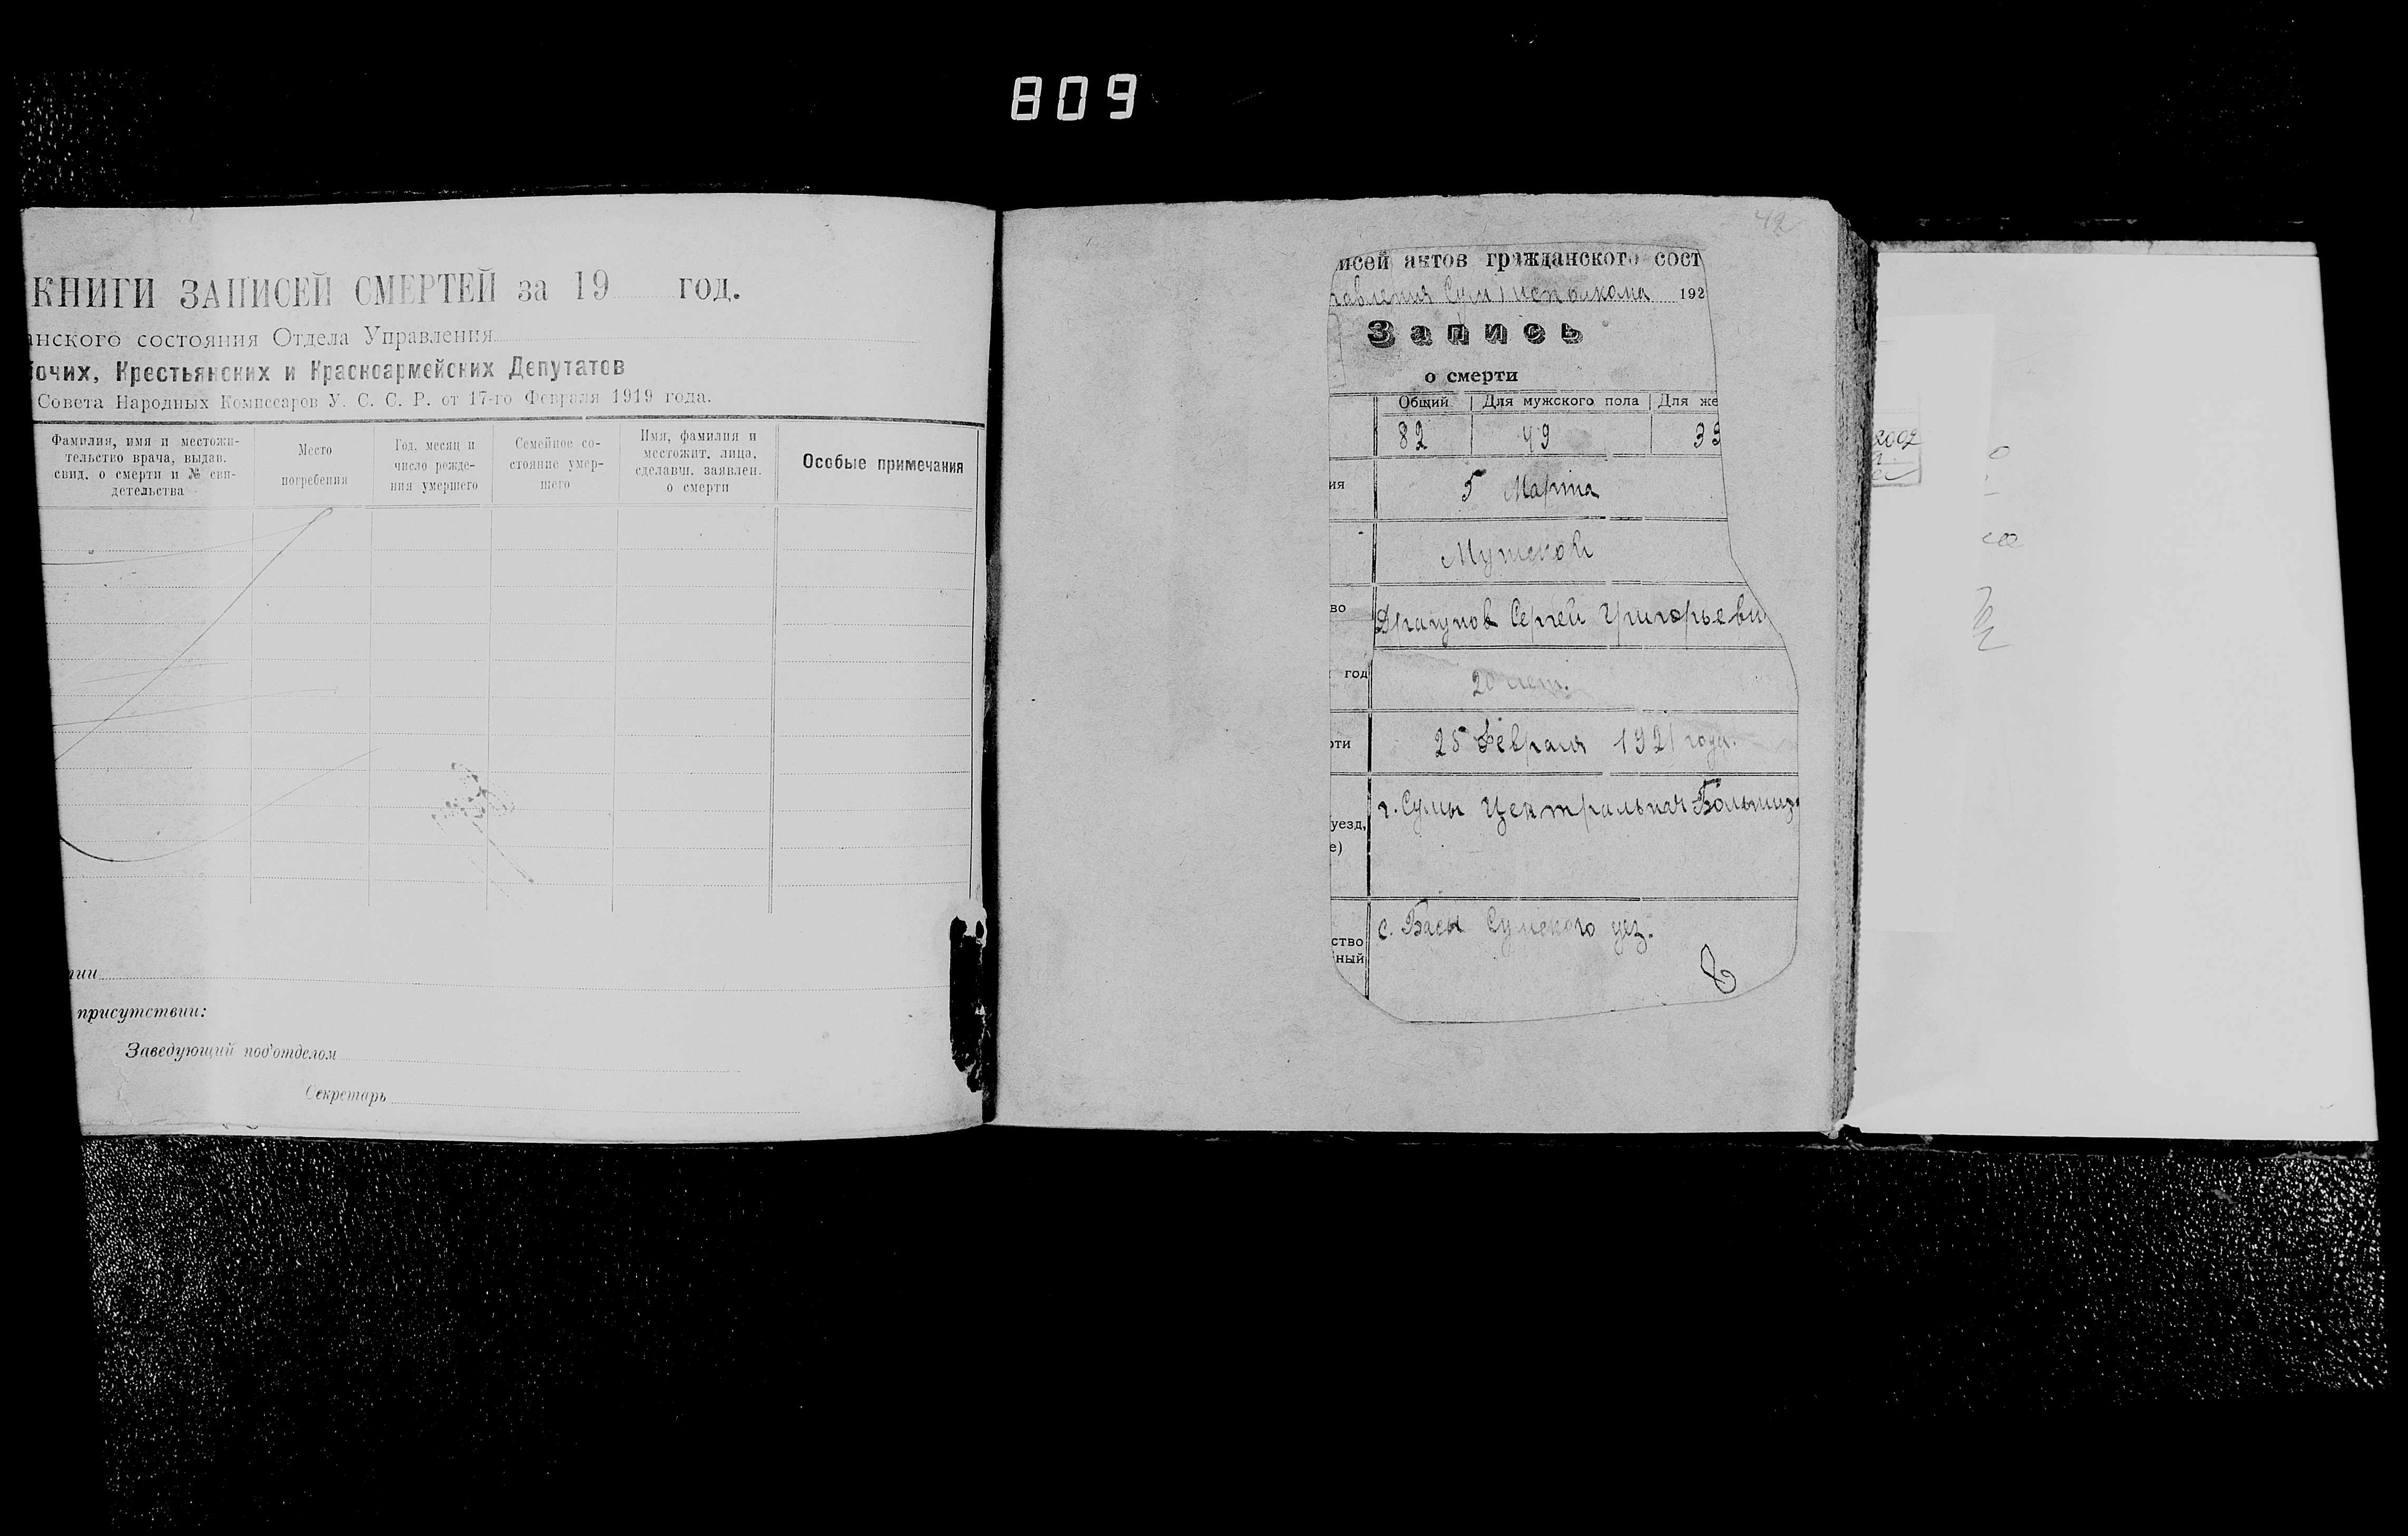 809
КНИГИ ЗАПИСЕЙ СМЕРТЕЙ за 19 год.
нского состояния Отдела Управления
очих, Крестьянских и Красноармейских Депутатов
Совета Народных Комиссаров У. С. С. Р. от 17-го Февраля 1919 года.
Фамилия, имя и местожи-
тельство врача, выдав.
свид. о смерти и № сви-
детельства
Место
погребения
Год, месяц и
число рожде-
ния умершего
Семейное со-
стояние умер-
шего
Имя, фамилия и
местожит. лица,
сделавш. заявлен.
о смерти
Особые примечания
тии
присутствии:
Заведующий под'отделом
Секретарь
42
исей актов гражданского сост
равления Сум исполкома 192
Запись
о смерти
Общий Для мужского пола Для же
82 49 33
ия 5 Марта
Мужской
во Драгунов Сергей Григорьеви
год 20 лет.
рти 25 Февраля 1921 года.
г. Сумы Центральная Больниц
уезд,
е)
с. Басы Сумского уез.
ство
ный
2002